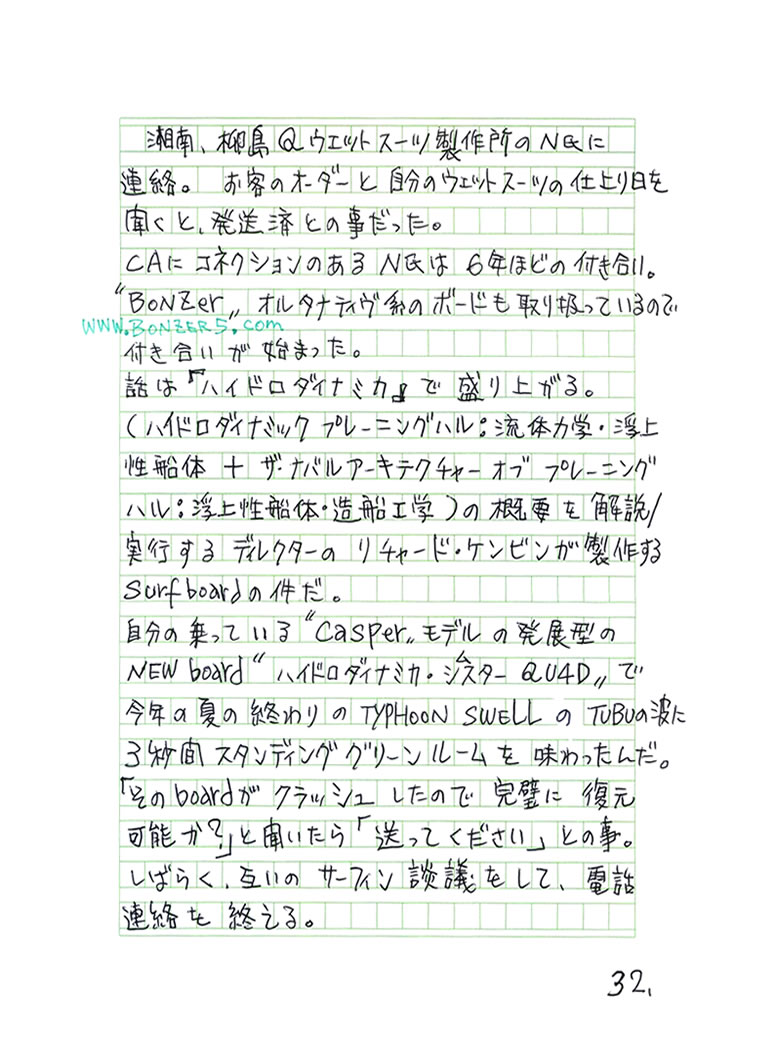 湘南、柳島Qウエットスーツ製作所のN氏に
連絡。 お客のオーダーと自分のウェットスーツの仕上り日を
聞くと、発送済との事だった。
CAにコネクションのあるN氏は6年ほどの付き合い。
“BONZer„ オルタナティヴ系のボードも取り扱っているので
WWW.BONZER5.com
付き合いが始まった。
話は『ハイドロダイナミカ』で盛り上がる。
(ハイドロダイナミック プレーニングハル:流体力学・浮上
性船体 + ザ・ナバルアーキテクチャー オブ プレーニング
ハル:浮上性船体・造船工学)の概要を解説/
実行するディレクターのリチャード・ケンビンが製作する
Surfboardの件だ。
自分の乗っている“Casper„モデルの発展型の
NEW board“ハイドロダイナミカ・シムスター QU4D„で
今年の夏の終わりのTYPHOON SWELLのTUBUの波に
3秒間スタンディンググリーンルームを味わったんだ。
「そのboardがクラッシュしたので完璧に復元
可能か?」と聞いたら「送ってください」との事。
しばらく、互いのサーフィン談議をして、電話
連絡を終える。
32.